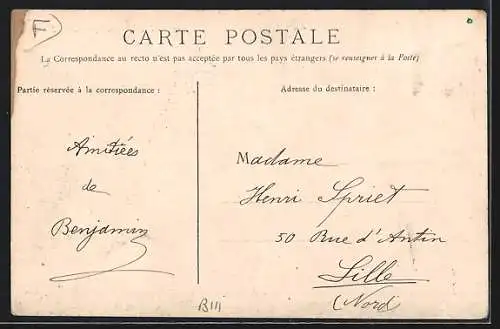 F
CARTE POSTALE
La Correspondance au recto n'est pas acceptée par tous les pays étrangers (se renseigner à la Poste)
Partie réservée à la correspondance :
Amitiées
de
Benjamin
Adresse du destinataire :
Madame
Henri Spriet
50 Rue d'Antin
Lille
(Nord)
B111